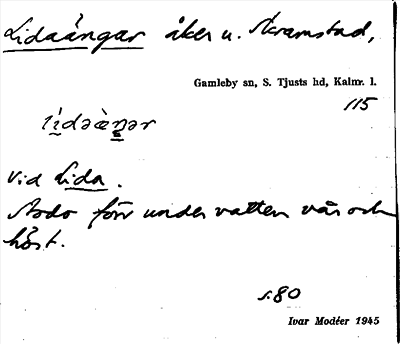 Lidaängar åker u. Skramstad,
Gamleby sn, S. Tjusts hd, Kalmr. l.
115
lìdəæ̀ŋər
vid Lida.
Stodo förr under vatten vår och
höst.
s.80
Ivar Modéer 1945